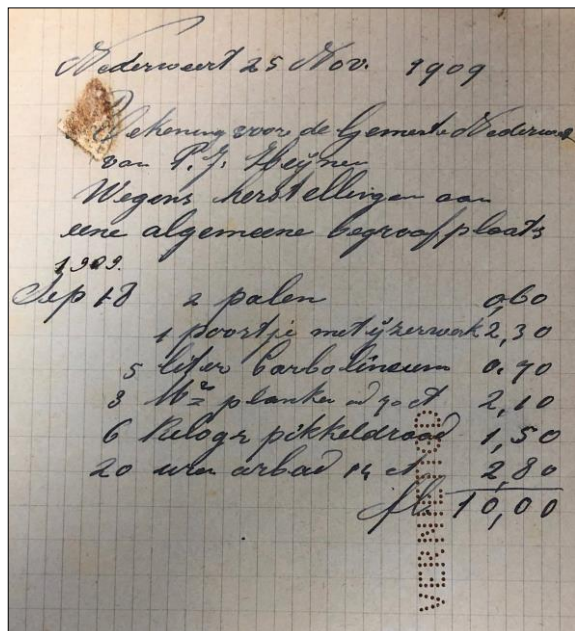 Nederweert 25 Nov. 1909
Rekening voor de Gemeente Nederweert
van P. J. Heijnen
Wegens herstellingen aan
eene algemeene begraafplaats
1909.
Sep 18 2 palen 0,60
1 poortje met ijzerwerk 2,30
5 liter Carbolineum 0.70
3 M2 planken ad 70 ct 2,10
6 Kilogr pikkeldraad 1,50
20 uren arbad 14 ct 2,80
fl. 10,00
VERNIETIGD